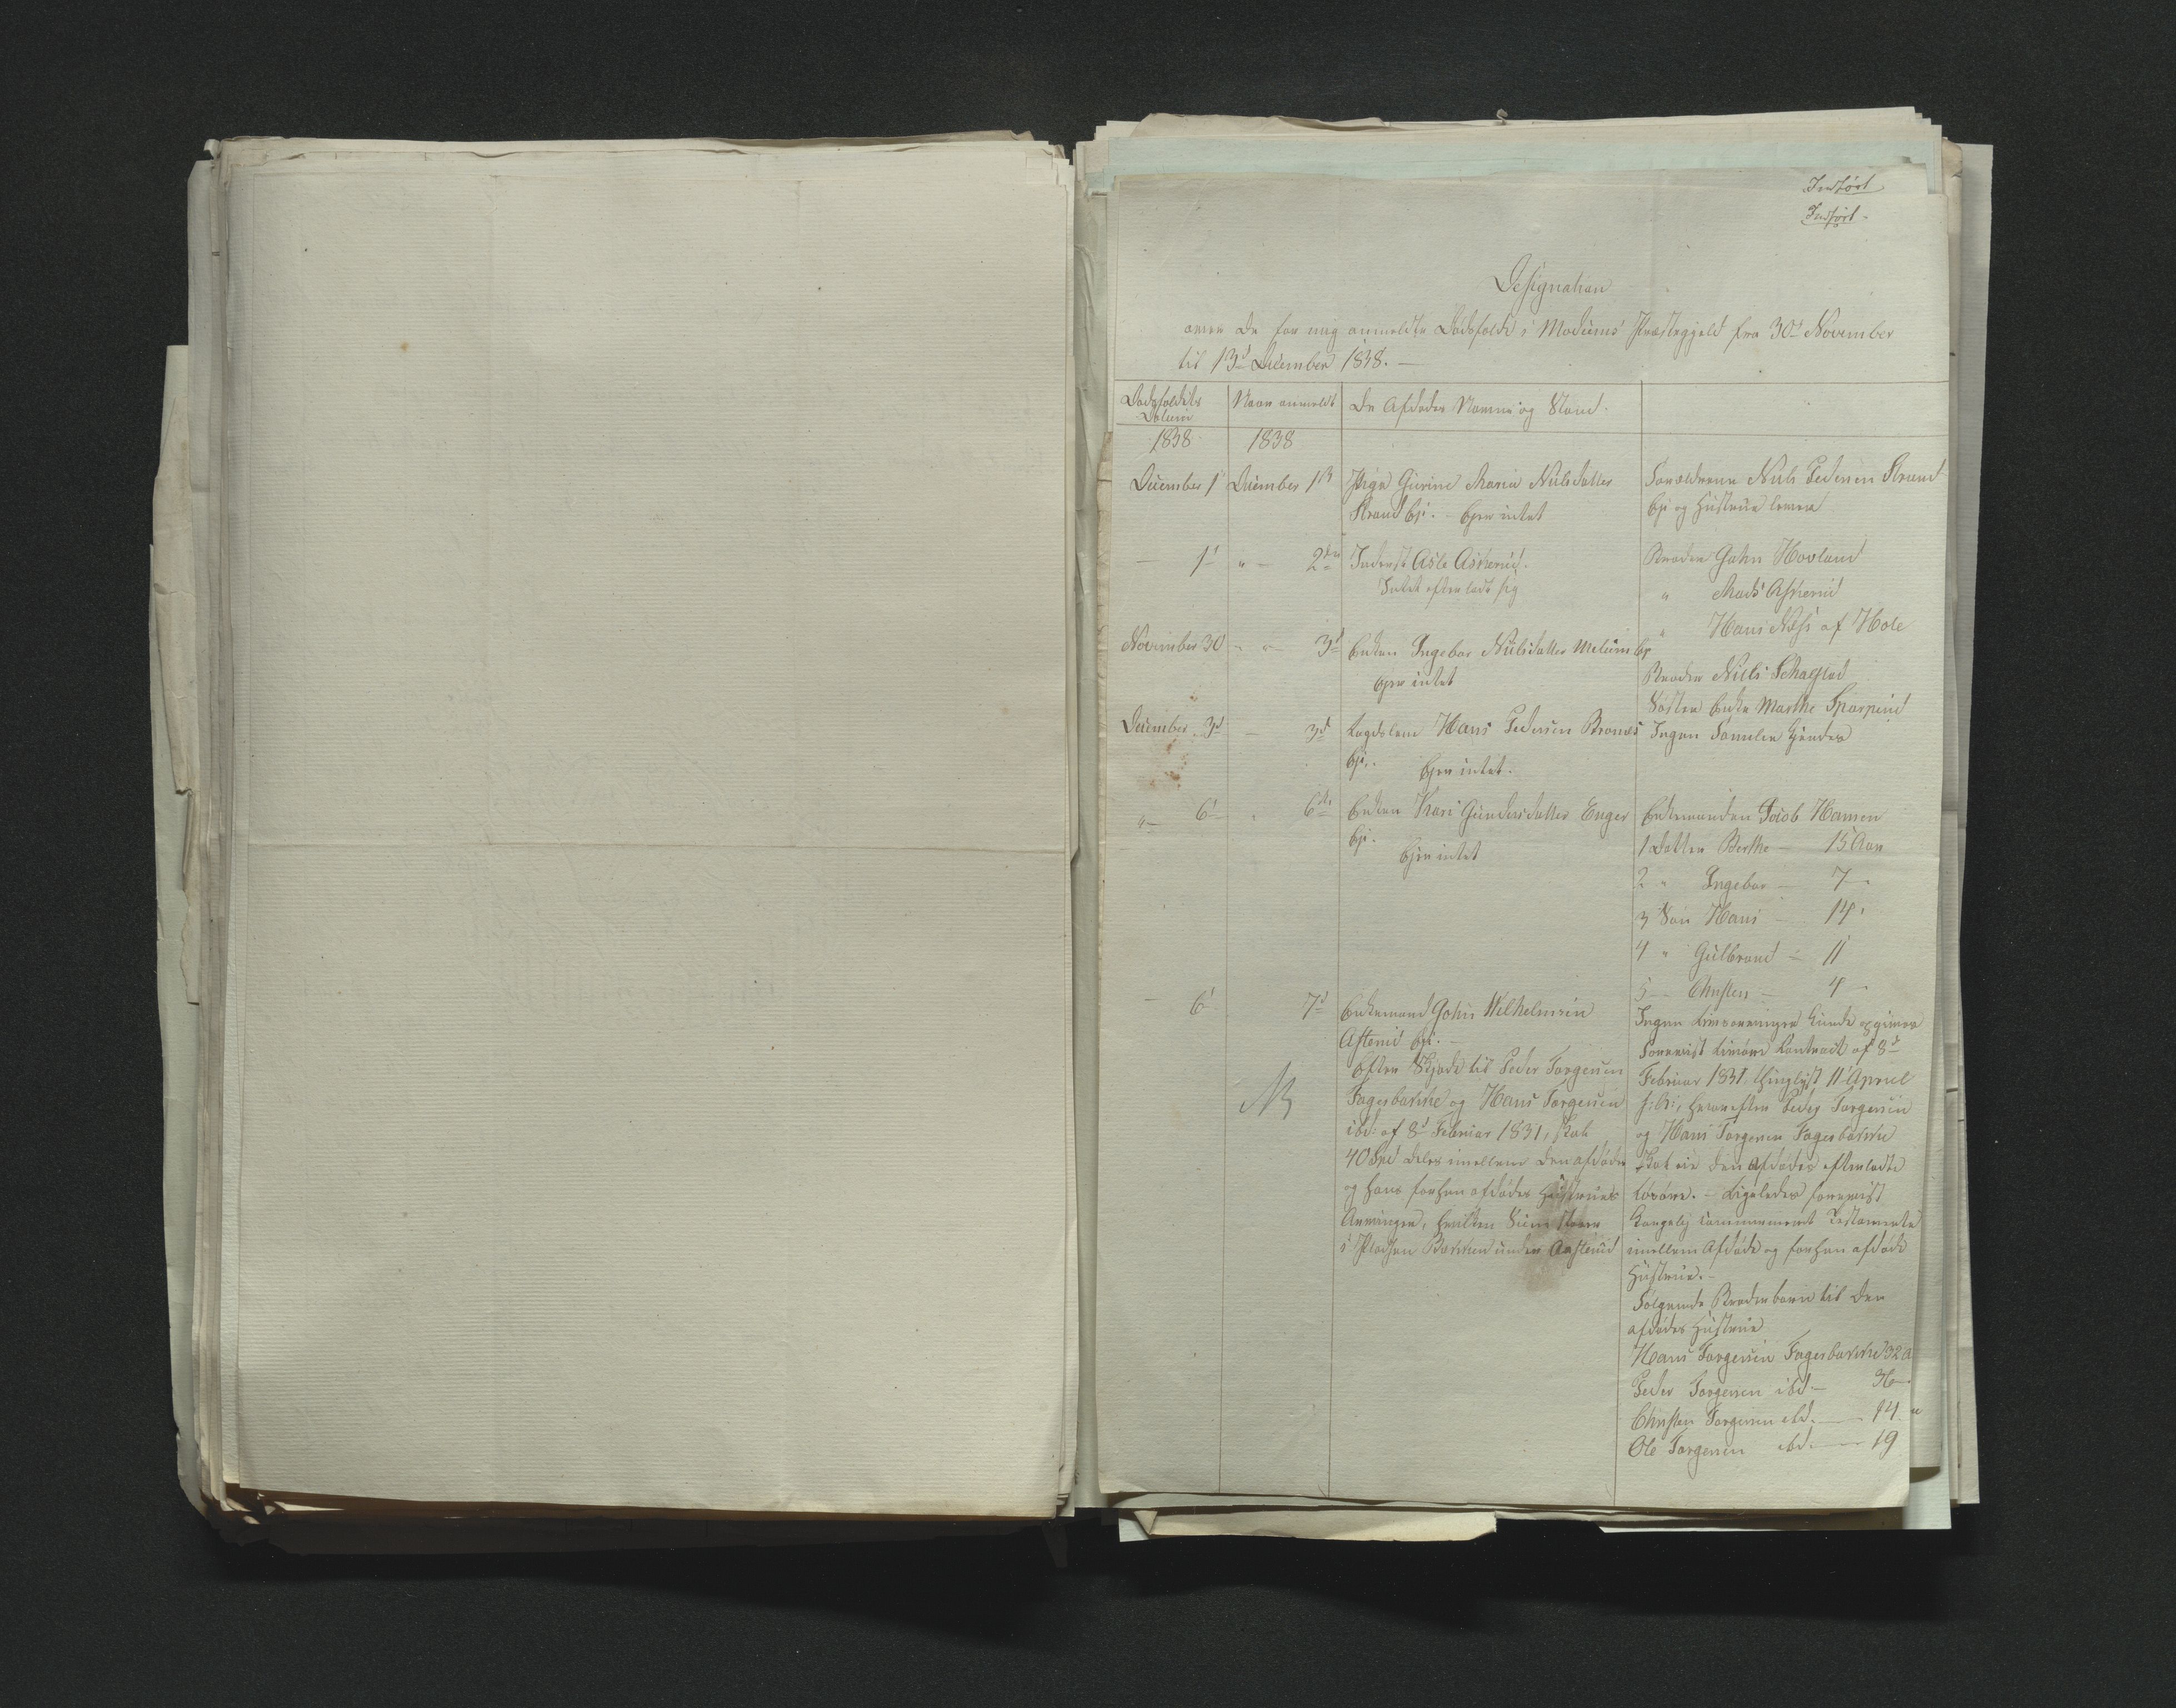 Indført
Indført
Designation
over de for mig anmeldte Dødsfald i Modums Præstegjeld fra 30te November
til 13de December 1838. —
Dødsfaldets
Datum
Naar anmeldt
De Afdødes Navne og Stand.
1838
1838
December 1
December 1ste
Pige Gurine Maria Nielsdatter
Strand
Eier intet
Forældrene Niels Pedersen Strand
og Hustrue lever
— 1
" — 2den
Inderst Asle Askerud.
Intet efterladt sig
Broder John Hovland
" Mads Askerud
" Hans Næss af Hole
November 30
" " 3d
Enken Ingebor Nielsdatter Melum
Eier intet
Broder Niels
Søster Enke Marthe
December 3d
— 3d
Lægdslem Hans Pedersen
Eier intet.
Ingen Familie kjendes
" 6
" 6te
Enken Kari Gundersdatter Enger
Eier intet
Enkemanden Jacob Hansen
1 Datter Berthe — 15 Aar
2 " Ingebor — 7 —
3 Søn Hans — 14 "
4 " Gulbrand — 11
5 — Christen — 4 —
— 6
7d
Enkemand John Wilhelmsen
Aftenid
Efter Skjøde til Peder Torgersen
Fagerbakke og Hans Torgersen
ibd: af 8d Februar 1831, skal
40 Spd deles imellem den afdøde
og hans forhen afdødes Hustrues
Arvinger, hvilken Sum staaer
i Pladsen Bakken under
NB
Ingen Livsarvinger kunde opgives
Forevist Contract af 8d
Februar 1831, thinglyst 11 April
hvorefter Peder Torgersen
og Hans Torgersen Fagerbakke
skal eie den Afdødes efterladte
Løsøre. — Ligeledes forevist
Kongelig Testamente
imellem Afdøde og forhen afdøde
Hustrue. —
Følgende Broderbørn til den
afdødes Hustrue
Hans Torgersen Fagerbakke 32 a
Peder Torgersen ibd — 36 —
Christen Torgersen ibd. — 14 "
Ole Torgersen ibd. — 19